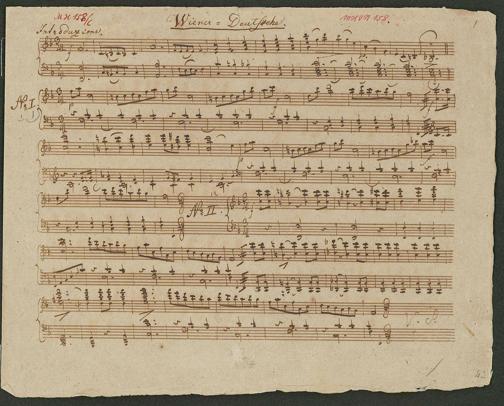 MH 158/c Wiener = Deutsche. MH VII 158. 1
Introduzione.
No. I.
No. II.